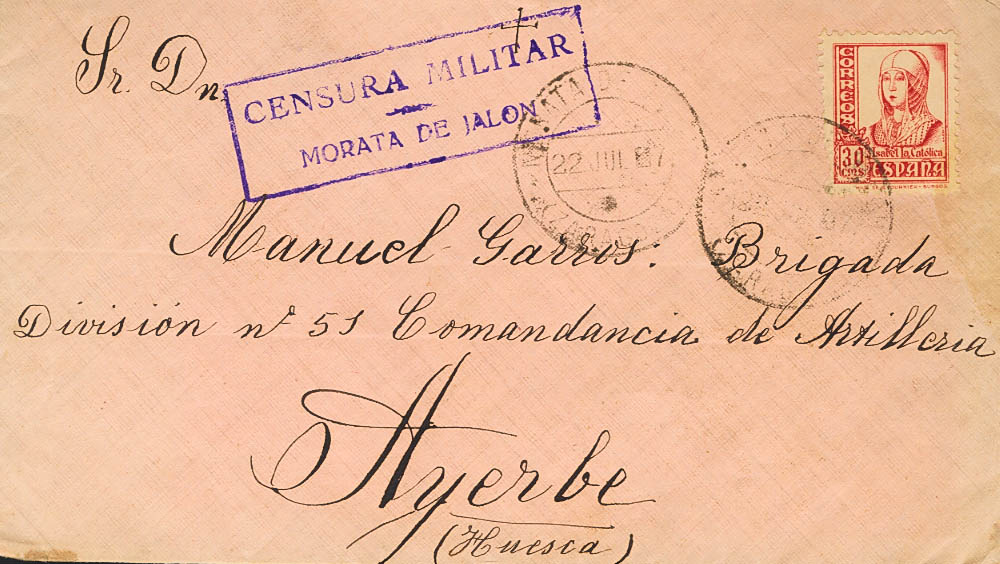 Sr. Dn.
CENSURA MILITAR
MORATA DE JALON
22 JUL 37
CORREOS
30 CTMS
Isabel la Católica
ESPAÑA
Manuel Garros. Brigada
División nº 51 Comandancia de Artilleria
Ayerbe
(Huesca)